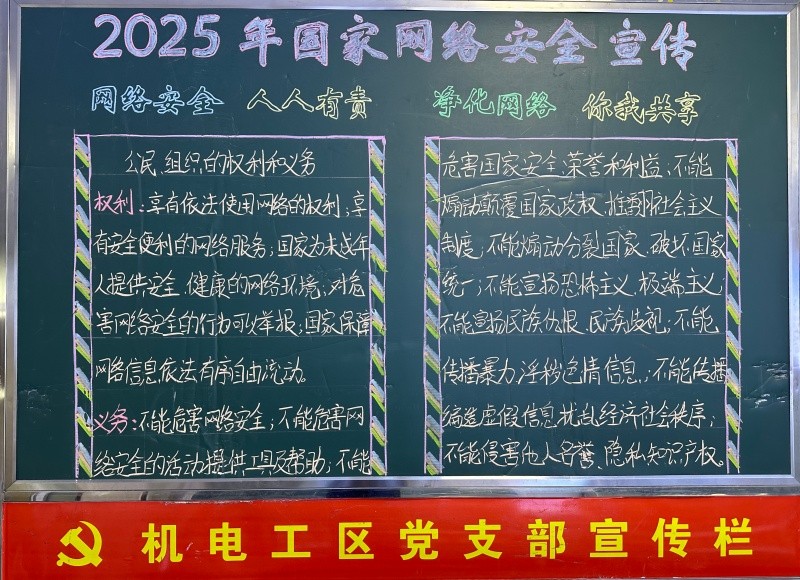 2025年国家网络安全宣传
网络安全 人人有责 净化网络 你我共享
公民、组织的权利和义务
权利:享有依法使用网络的权利;享
有安全便利的网络服务;国家为未成年
人提供安全、健康的网络环境;对危
害网络安全的行为可以举报;国家保障
网络信息依法有序自由流动。
义务:不能危害网络安全;不能危害网
络安全的活动提供工具及帮助;不能
危害国家安全、荣誉和利益;不能
煽动颠覆国家政权、推翻社会主义
制度;不能煽动分裂国家、破坏国家
统一;不能宣扬恐怖主义、极端主义,
不能宣扬民族仇恨、民族歧视;不能
传播暴力、淫秽色情信息;不能传播
编造虚假信息扰乱经济社会秩序;
不能侵害他人名誉、隐私知识产权。
机电工区党支部宣传栏